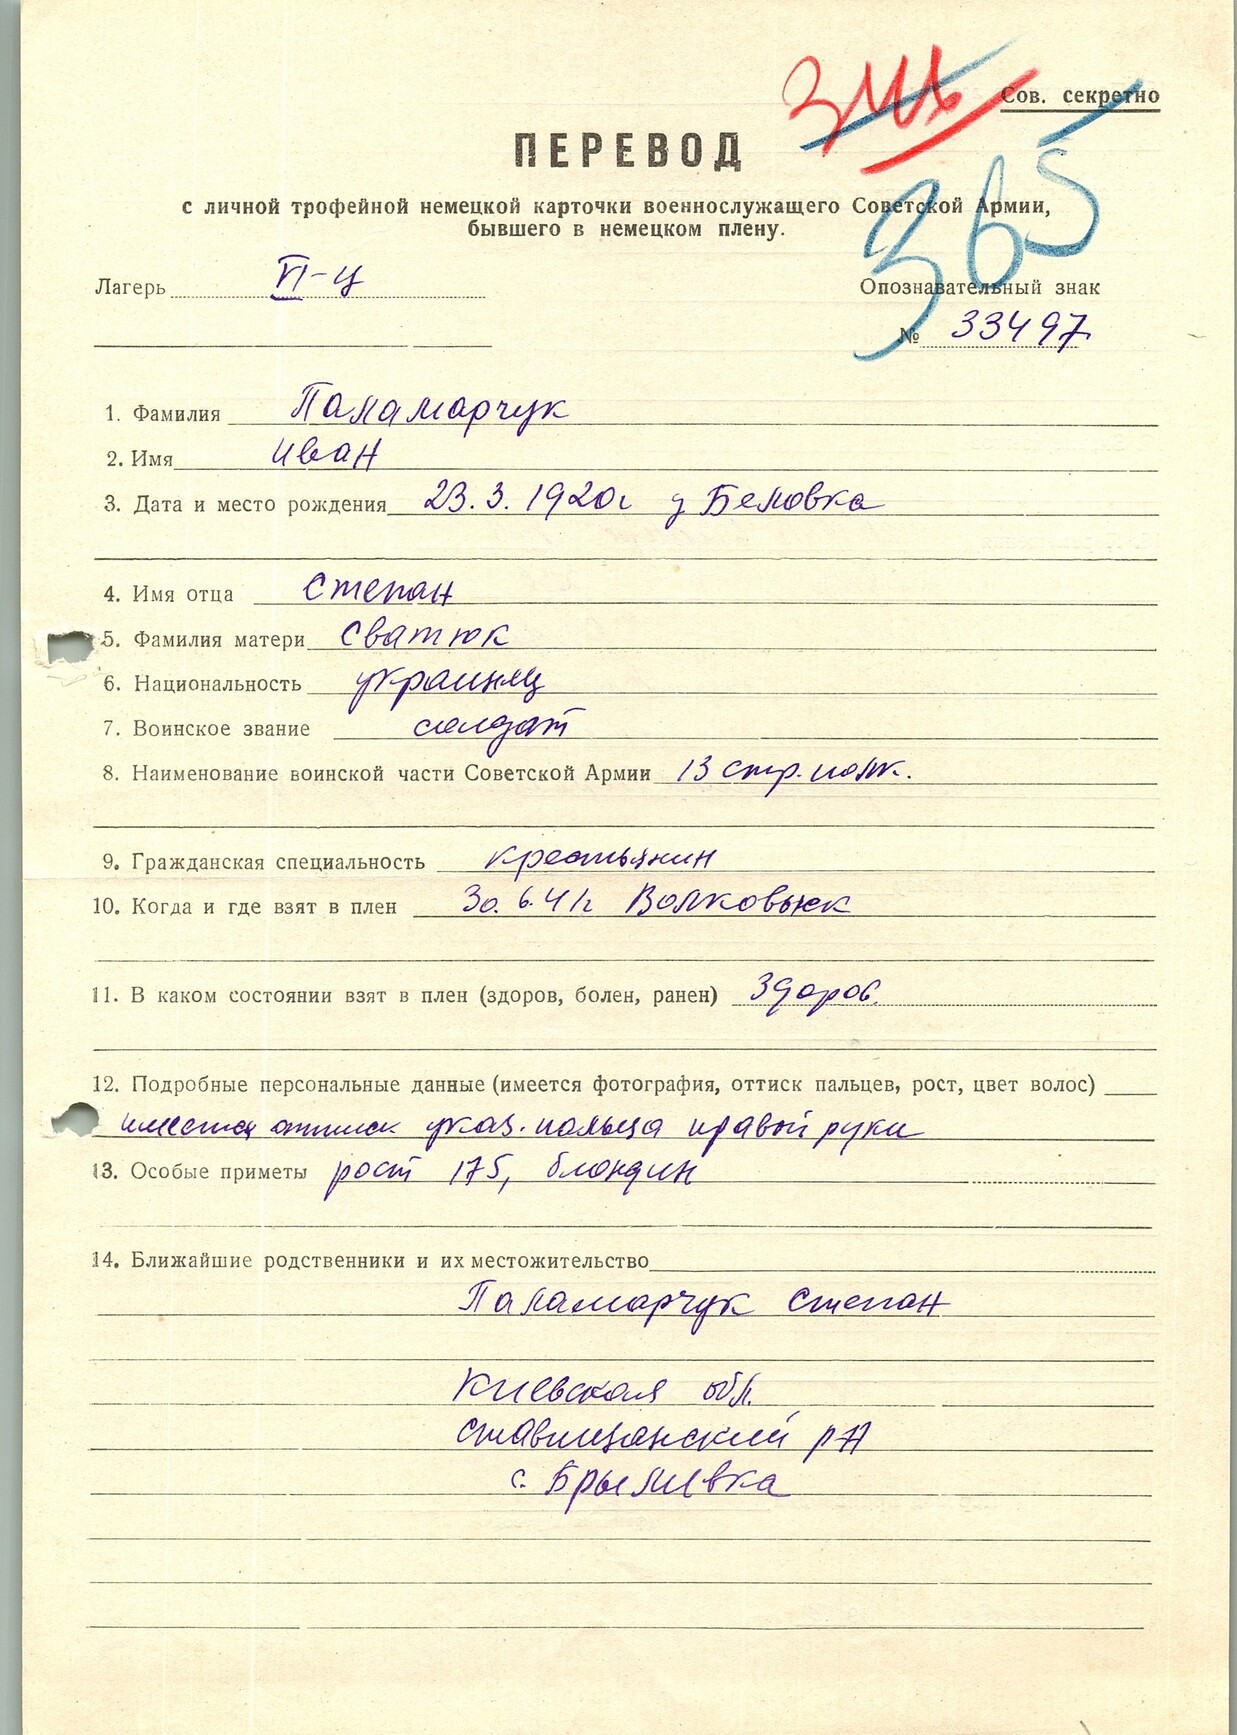 Сов. секретно
365
ПЕРЕВОД
с личной трофейной немецкой карточки военнослужащего Советской Армии,
бывшего в немецком плену.
Лагерь VI-ц
Опознавательный знак
№ 33497
1. Фамилия Паламарчук
2. Имя Иван
3. Дата и место рождения 23.3.1920г д Беловка
4. Имя отца Степан
5. Фамилия матери Сватюк
6. Национальность украинец
7. Воинское звание солдат
8. Наименование воинской части Советской Армии 13 стр. полк.
9. Гражданская специальность крестьянин
10. Когда и где взят в плен 30.6.41г Волковыск
11. В каком состоянии взят в плен (здоров, болен, ранен) здоров.
12. Подробные персональные данные (имеется фотография, оттиск пальцев, рост, цвет волос)
имеется оттиск указ. пальца правой руки
13. Особые приметы рост 175, блондин
14. Ближайшие родственники и их местожительство
Паламарчук Степан
Киевская обл.
Ставищанский р-н
с. Брыливка